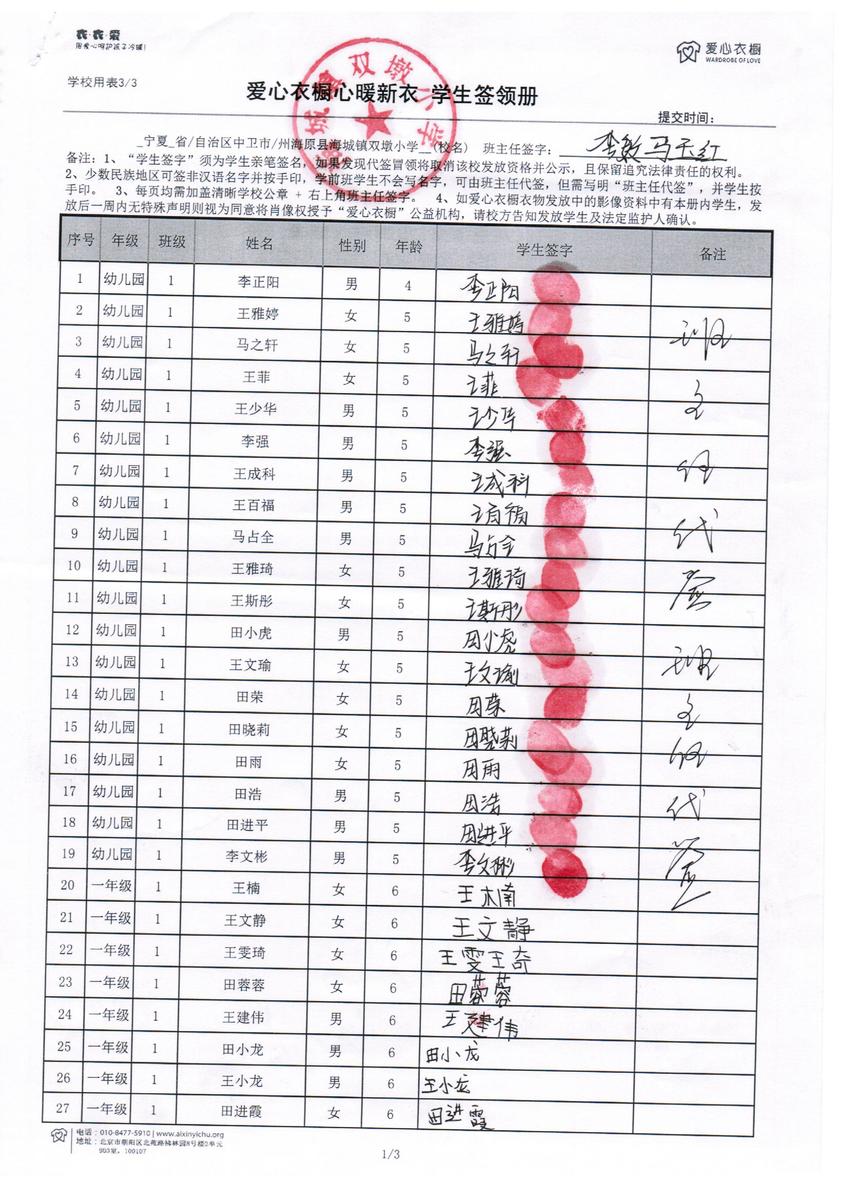 衣·衣·爱
用爱心呵护孩子冷暖!
爱心衣橱
WARDROBE OF LOVE
学校用表3/3
爱心衣橱心暖新衣 学生签领册
提交时间:
_宁夏_省/自治区中卫市/州海原县海城镇双墩小学__(校名) 班主任签字: 李敏 马玉红
备注:1、“学生签字”须为学生亲笔签名,如果发现代签冒领将取消该校发放资格并公示,且保留追究法律责任的权利。
2、少数民族地区可签非汉语名字并按手印,学前班学生不会写名字,可由班主任代签,但需写明“班主任代签”,并学生按
手印。 3、每页均需加盖清晰学校公章 + 右上角班主任签字。 4、如爱心衣橱衣物发放中的影像资料中有本册内学生,发
放后一周内无特殊声明则视为同意将肖像权授予“爱心衣橱”公益机构,请校方告知发放学生及法定监护人确认。
城镇双墩小学
序号 年级 班级 姓名 性别 年龄 学生签字 备注
1 幼儿园 1 李正阳 男 4 李正阳
2 幼儿园 1 王雅婷 女 5 王雅婷 班
3 幼儿园 1 马之轩 女 5 马之轩
4 幼儿园 1 王菲 女 5 王菲 主
5 幼儿园 1 王少华 男 5 王少华
6 幼儿园 1 李强 男 5 李强 任
7 幼儿园 1 王成科 男 5 王成科
8 幼儿园 1 王百福 男 5 王百福 代
9 幼儿园 1 马占全 男 5 马占全
10 幼儿园 1 王雅琦 女 5 王雅琦 签
11 幼儿园 1 王斯彤 女 5 王斯彤
12 幼儿园 1 田小虎 男 5 田小虎
13 幼儿园 1 王文瑜 女 5 王文瑜 班
14 幼儿园 1 田荣 女 5 田荣 主
15 幼儿园 1 田晓莉 女 5 田晓莉 任
16 幼儿园 1 田雨 女 5 田雨
17 幼儿园 1 田浩 男 5 田浩 代
18 幼儿园 1 田进平 男 5 田进平
19 幼儿园 1 李文彬 男 5 李文彬 签
20 一年级 1 王楠 女 6 王楠
21 一年级 1 王文静 女 6 王文静
22 一年级 1 王雯琦 女 6 王雯琦
23 一年级 1 田蓉蓉 女 6 田蓉蓉
24 一年级 1 王建伟 男 6 王建伟
25 一年级 1 田小龙 男 6 田小龙
26 一年级 1 王小龙 男 6 王小龙
27 一年级 1 田进霞 女 6 田进霞
电话:010-8477-5910 | www.aixinyichu.org
地址:北京市朝阳区北苑路桃林园8号楼2单元
903室,100107
1/3